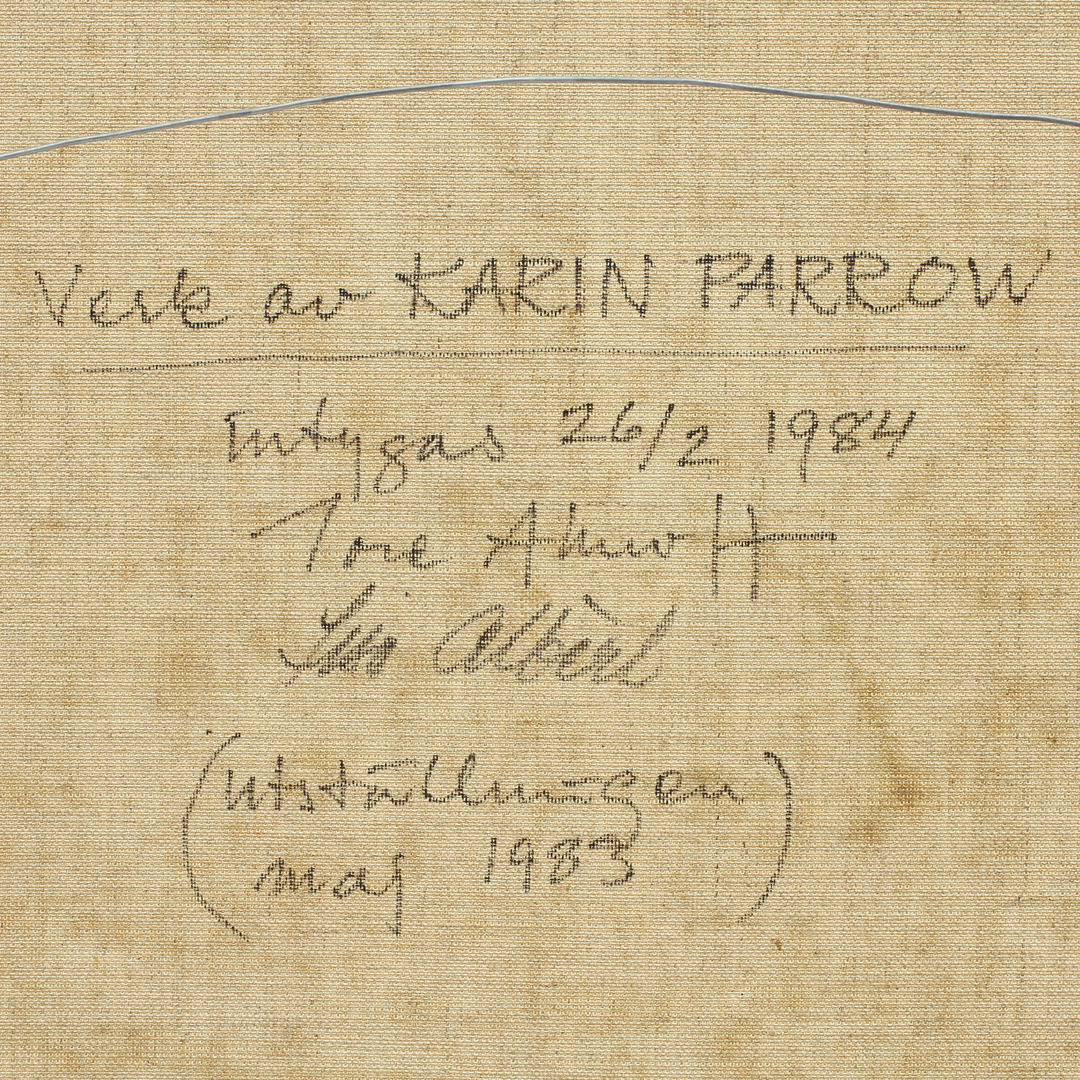 Verk av KARIN PARROW
Intygas 26/2 1984
Tore
(utställningen
maj 1983)